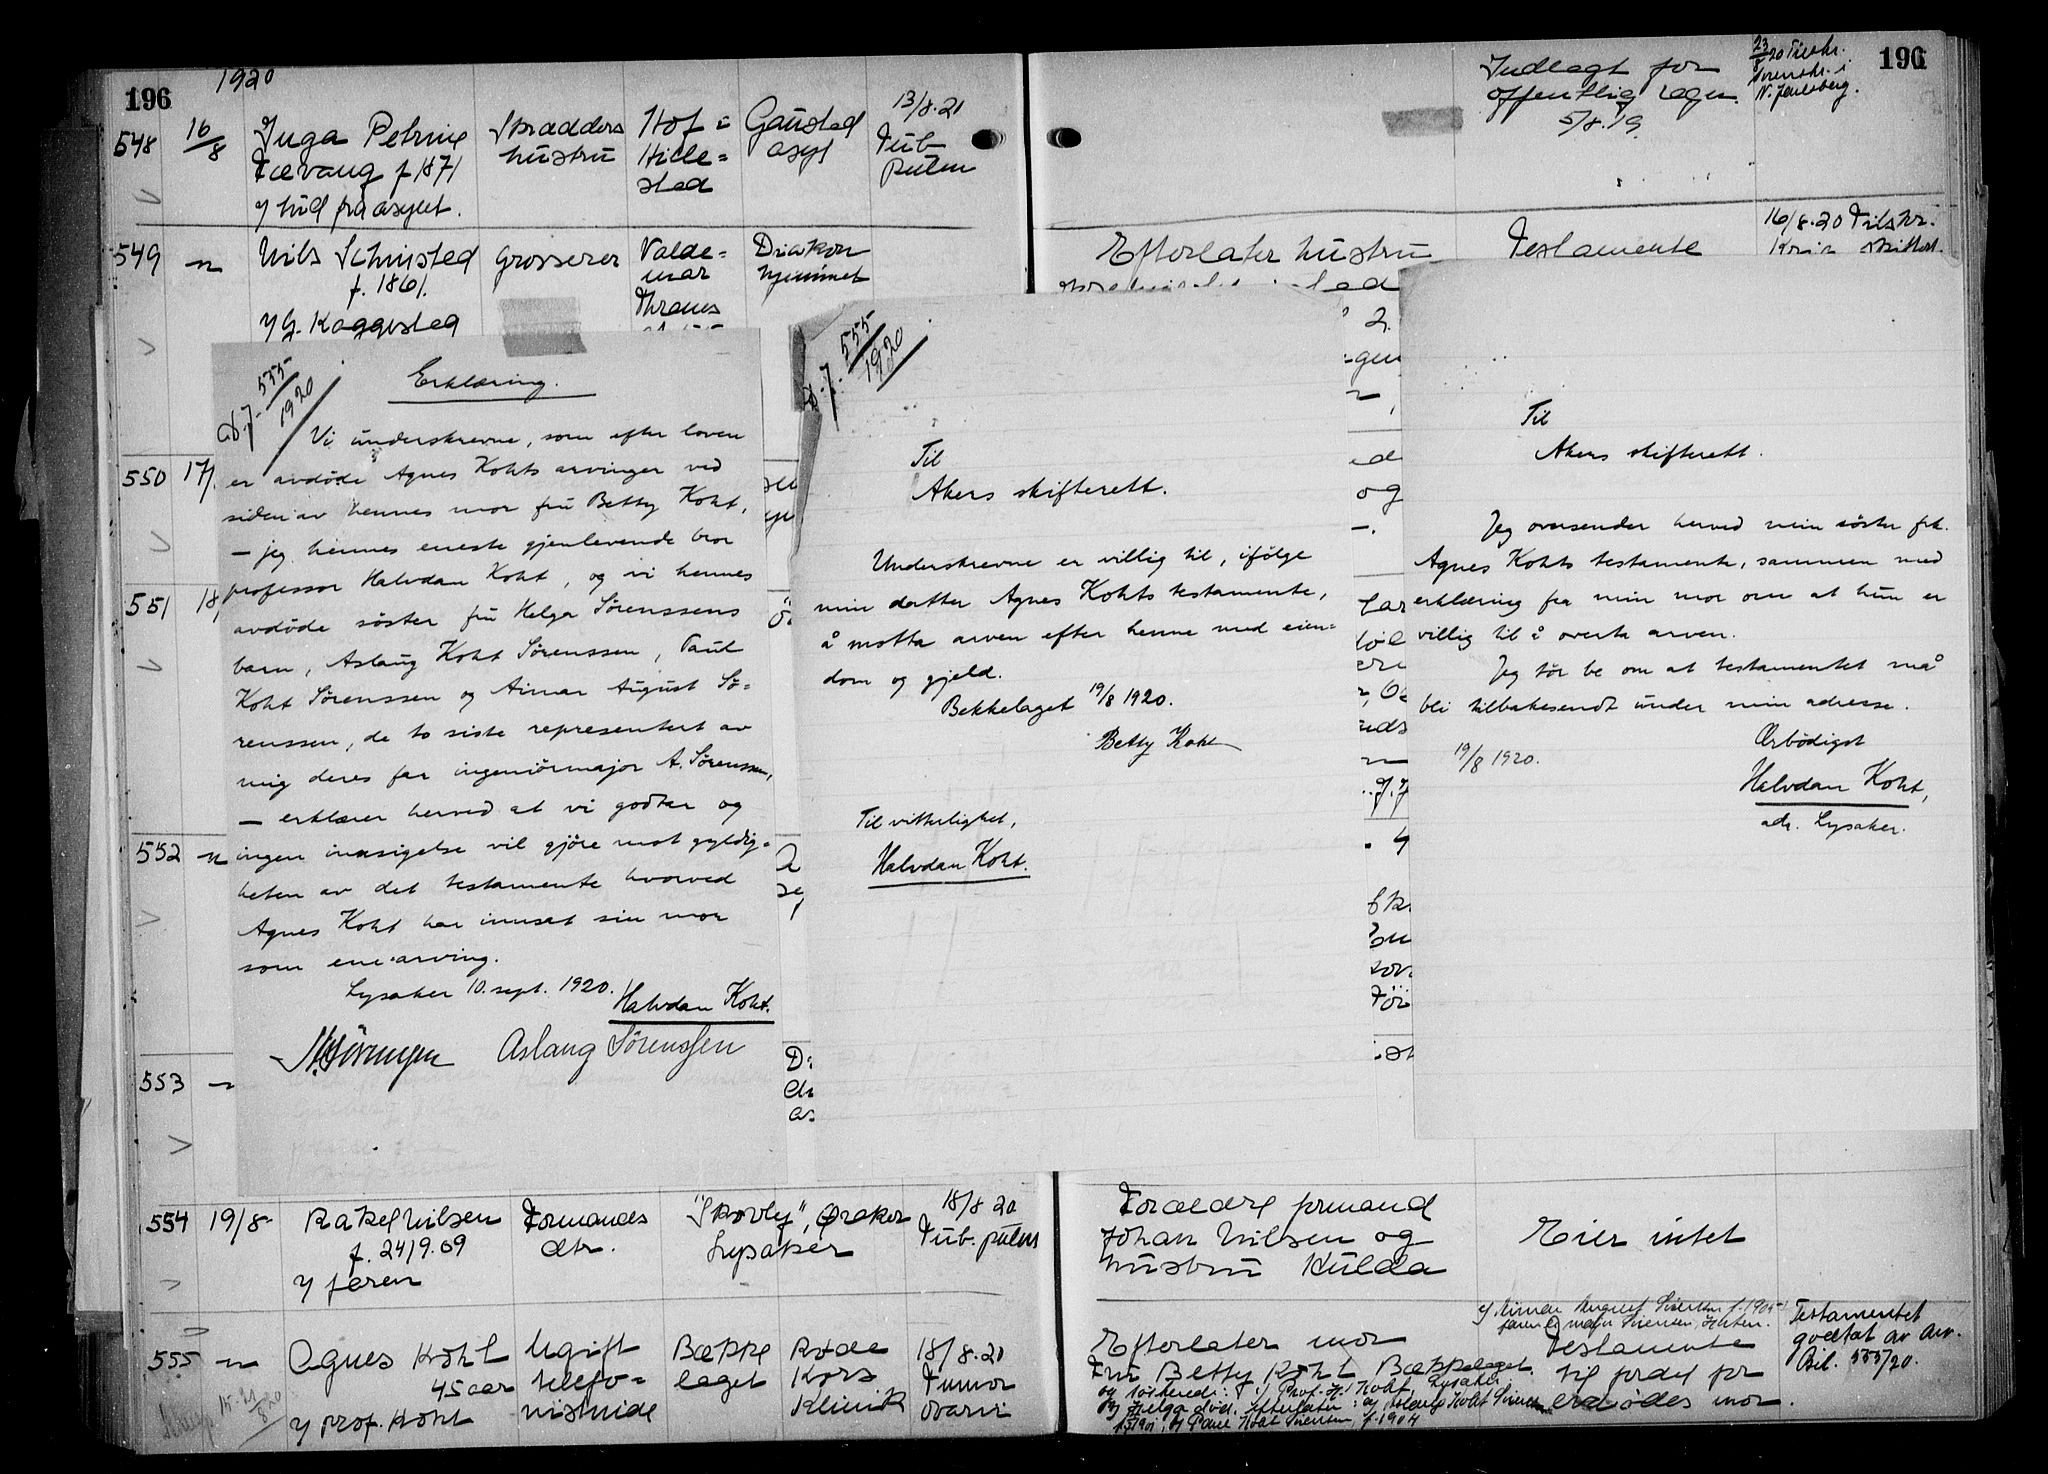 196
1920
548 16/8 Inga Petrine Skrædders Hof i Gaustad 13/8.20
Tævang f 1871 hustru Hille= asyl Tub.
sted pulm
v/ bud fra asylet.
Indlagt for
offentlig regn.
5/8.19.
23/8 20 Tilskr.
Sorenskr. i
N. Jarlsberg.
196
549 " Nils Schusted Grosserer Valde= Diakon
f. 1861. mar hjemmet
v/ G. Koggested Thranes
Efterlater hustru Testamente 16/8.20 Tilskr.
550 17/
551 18/
552 "
553 "
D.J. 555/1920
Erklæring.
Vi underskrevne, som efter loven
er avdøde Agnes Kohts arvinger ved
siden av hennes mor fru Betty Koht,
— jeg hennes eneste gjenlevende bror
professor Halvdan Koht, og vi hennes
avdøde søster fru Helga Sørenssens
barn, Aslaug Koht Sørenssen, Paul
Koht Sørenssen og Aimar August Sø=
renssen, de to siste representert av
mig deres far ingeniørmajor A. Sørenssen,
— erklærer herved at vi godtar og
ingen innsigelse vil gjöre mot gyldig=
heten av det testamente hvorved
Agnes Koht har innsat sin mor
som enearving.
Lysaker 10. sept. 1920.
Halvdan Koht.
Aslaug Sørenssen
D.J. 555/1920
Til
Akers skifterett.
Underskrevne er villig til, ifölge
min datter Agnes Kohts testamente,
å motta arven efter henne med eien=
dom og gjeld.
Bekkelaget 19/8 1920.
Betty Koht
Til vitterlighet,
Halvdan Koht.
Til
Akers skifterett.
Jeg oversender herved min söster frk.
Agnes Kohts testamente, sammen med
erklæring fra min mor om at hun er
villig til å overta arven.
Jeg tör be om at testamentet må
bli tilbakesendt under min adresse.
19/8 1920.
Ærbödigst
Halvdan Koht,
adr. Lysaker.
554 19/8 Rakel Nilsen Formands "Skovly", Øraker 18/8 20
f. 24/9.09 dtr. Lysaker Tub. pulm
v/ faren
Forældre formand
Johan Nilsen og Eier intet
hustru Hulda
555 " Agnes Koht Ugift Bække Røde 18/8.20
45 aar telefo= laget Kors Tumor
v/ prof. Koht nistinde Klinik ovarii
Efterlater mor Testamente
Fru Betty Koht Bækkelaget. til fordel for
og søskende: 1) Prof. H. Koht, Lysaker avdødes mor.
Testamentet
godtat av arv.
Bil. 555/20.